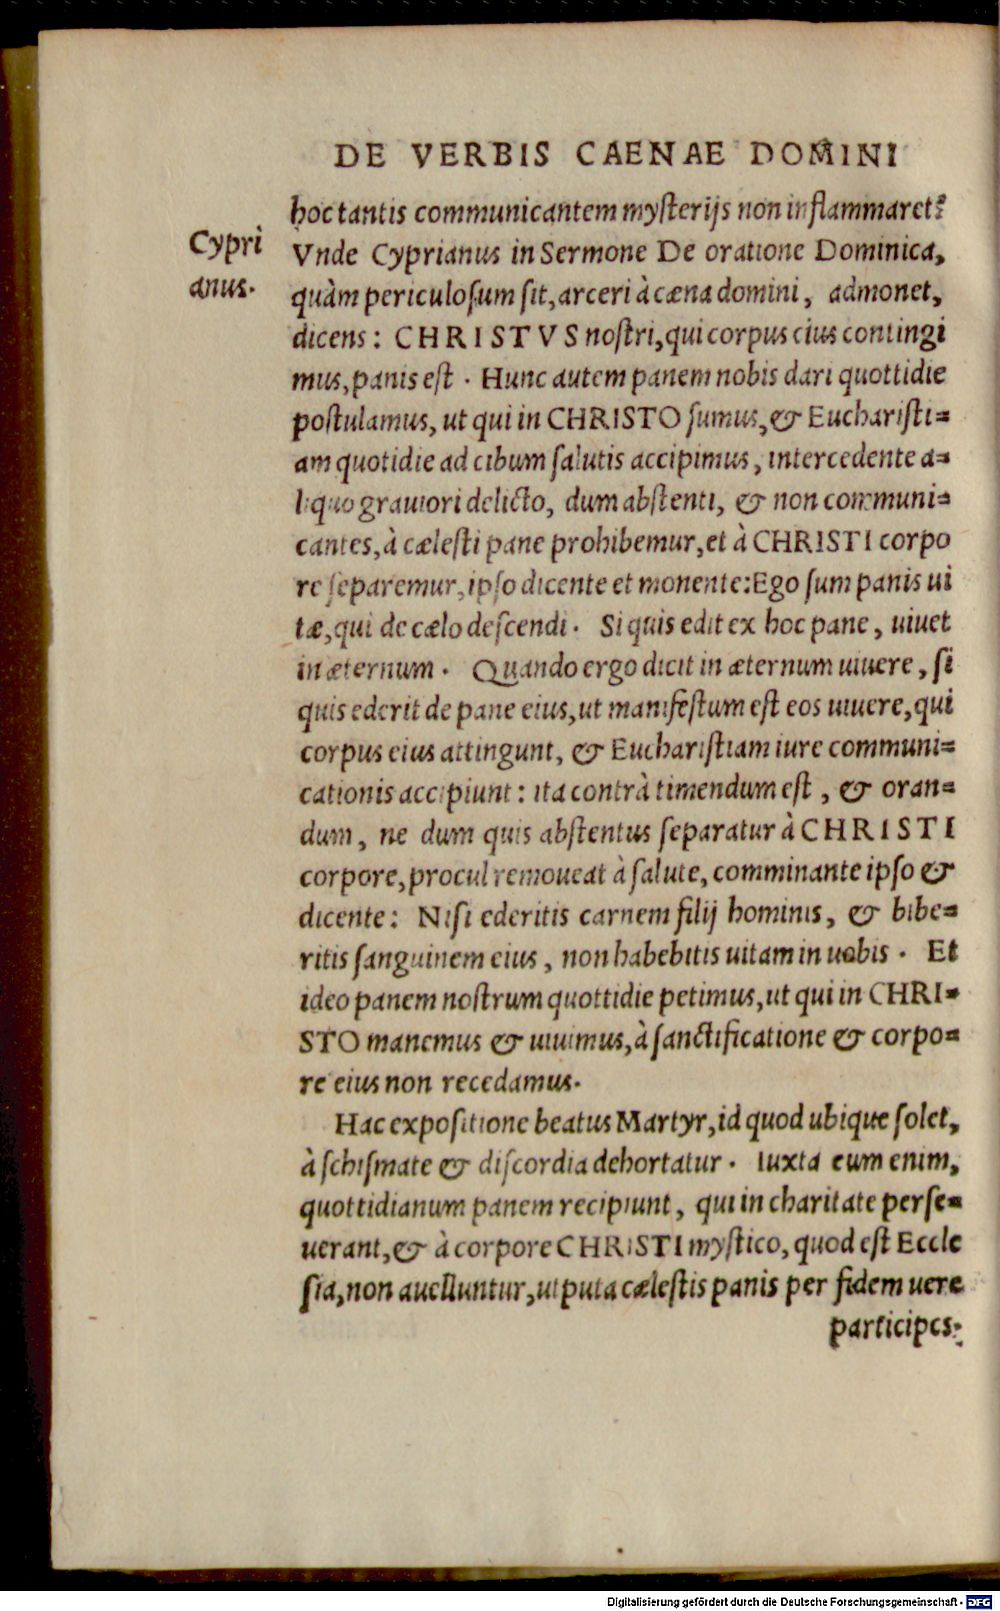 DE VERBIS CAENAE DOMINI
hoc tantis communicantem mysterijs non inflammaret?
Cypri
anus.
Vnde Cyprianus in Sermone De oratione Dominica,
quàm periculosum sit, arceri à cæna domini, admonet,
dicens: CHRISTVS nostri, qui corpus eius contingi
mus, panis est. Hunc autem panem nobis dari quottidie
postulamus, ut qui in CHRISTO sumus, & Eucharisti=
am quotidie ad cibum salutis accipimus, intercedente a=
liquo grauiori delicto, dum abstenti, & non communi=
cantes, à cælesti pane prohibemur, et à CHRISTI corpo
re separemur, ipso dicente et monente: Ego sum panis ui
tæ, qui de cælo descendi. Si quis edit ex hoc pane, uiuet
in æternum. Quando ergo dicit in æternum uiuere, si
quis ederit de pane eius, ut manifestum est eos uiuere, qui
corpus eius attingunt, & Eucharistiam iure communi=
cationis accipiunt: ita contrà timendum est, & oran=
dum, ne dum quis abstentus separatur à CHRISTI
corpore, procul remoueat à salute, comminante ipso &
dicente: Nisi ederitis carnem filij hominis, & bibe=
ritis sanguinem eius, non habebitis uitam in uobis. Et
ideo panem nostrum quottidie petimus, ut qui in CHRI=
STO manemus & uiuimus, à sanctificatione & corpo=
re eius non recedamus.
Hac expositione beatus Martyr, id quod ubique solet,
à schismate & discordia dehortatur. Iuxta eum enim,
quottidianum panem recipiunt, qui in charitate perse=
uerant, & à corpore CHRISTI mystico, quod est Eccle
sia, non auelluntur, utputa cælestis panis per fidem uere
participes:
Digitalisierung gefördert durch die Deutsche Forschungsgemeinschaft - DFG